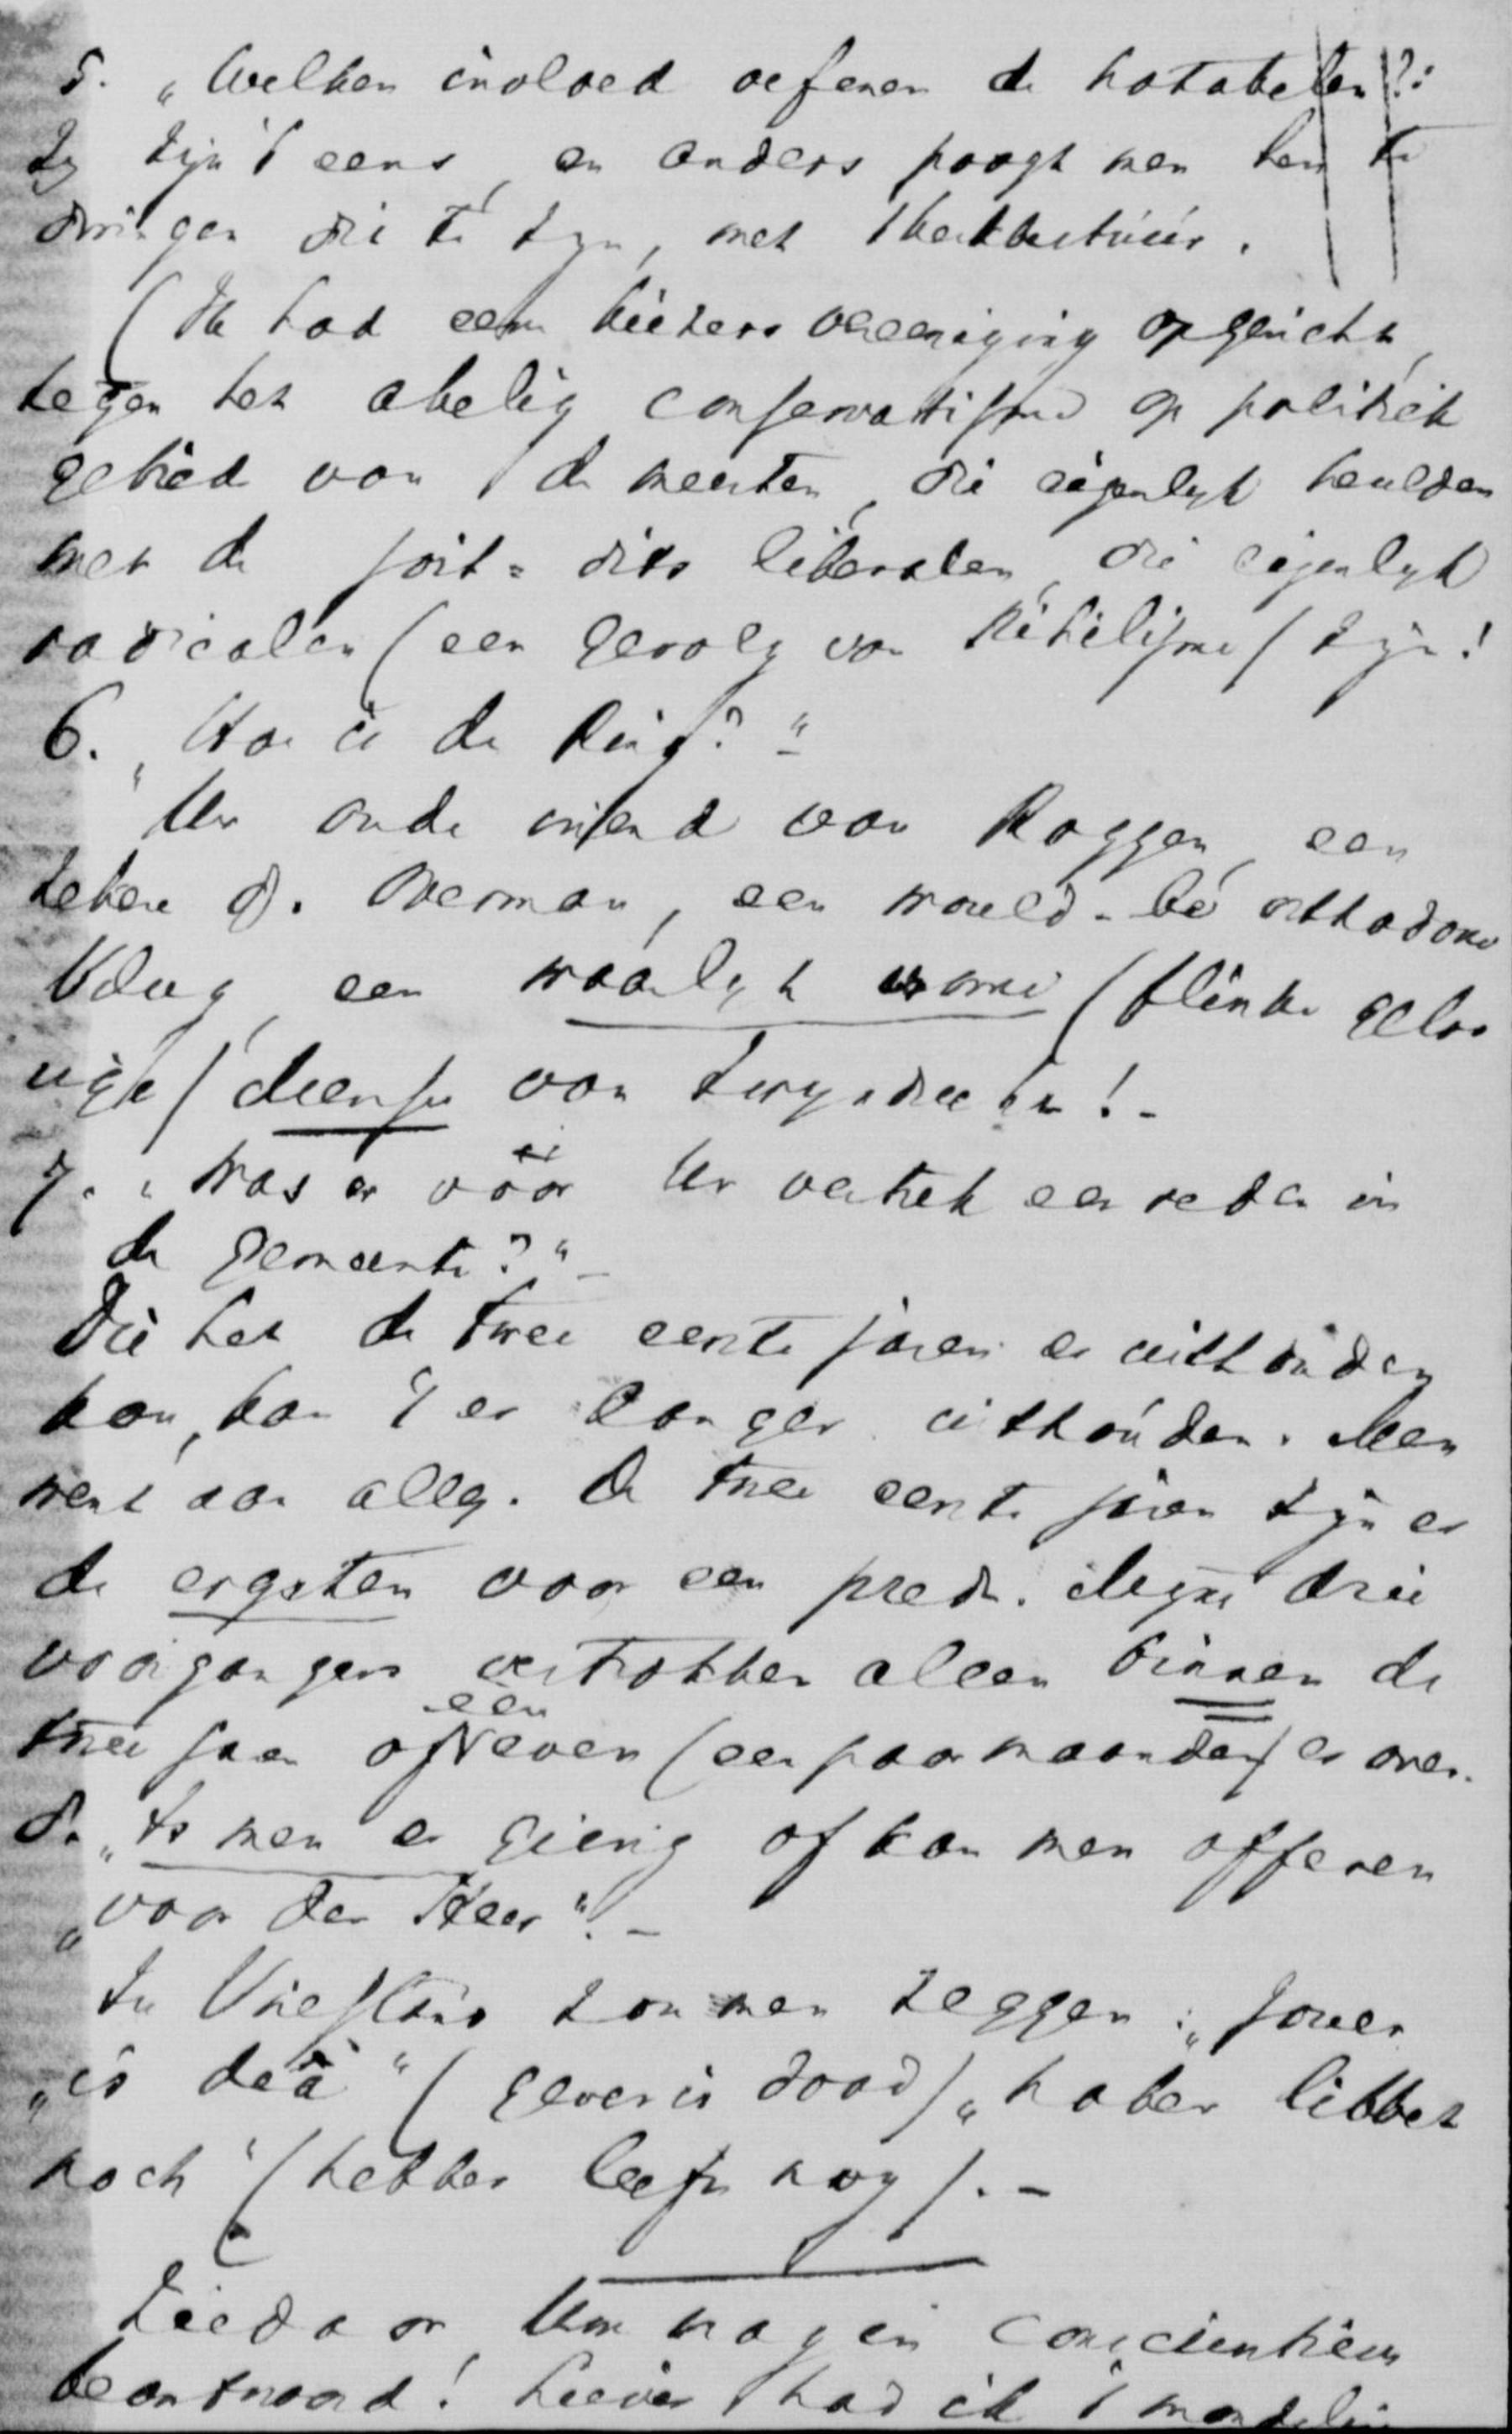 5. „Welken invloed oefenen de notabelen?:
Zy zijn 't eens, en anders poogt men hen te
dringen die te zyn, met 't kerkbestuur.
(Ik had een kiezersvereeniging opgericht,
tegen het conservatisme op politiek
gebied van de meesten, die eigenlyk heulden
met de soit-dits liberalen, die eigenlyk
radicalen (een gevolg van Nihilisme) zijn!
6. „Hoe is de Ring?"
Uw oude vriend van Roggen, een
zekere Ds. Overman, een would-be orthodoxe
een waarlyk vrome (flinke geloo
vige) van Zwyndrecht!-
7. „Was er vóór Uw vertrek een reden in
de gemeente?"-
Die het de twee eerste jaren er uithouden
kan, kan 't er langer uithouden. Men
went aan alles. De twee eerste jaren zijn er
de ergsten voor een pred. Mijne drie
voorgangers vertrokken alleen binnen de
twee jaar of een even (een paar maanden) er over.
8. „Is men er gierig of kan men offeren
„voor den Heer".-
In Vriesland zou men zeggen: „Jower
„is deä" (gever is dood) „habber libbet
noch" (hebber leeft nog).-
Ziedaar Uw vragen consciëntieus
beantwoord! Liever had ik 't